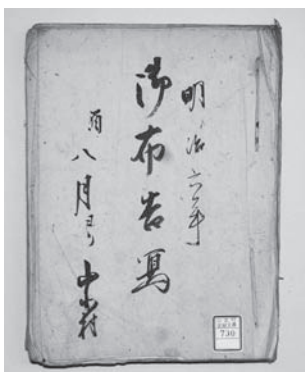 明治六年
御布告写
酉八月より
中小村
730